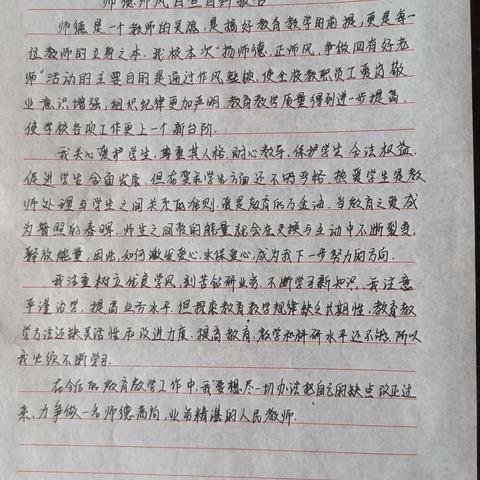 师德师风自查自纠报告
师德是一个教师的灵魂,是搞好教育教学的前提,更是每一
位教师的立身之本.我校本次“扬师德,正师风,争做四有好老
师”活动的主要目的是通过作风整顿,使全校教职员工爱岗敬
业意识增强,组织纪律更加严明,教育教学质量得到进一步提高,
使学校各项工作更上一个新台阶.
我关心爱护学生,尊重其人格,耐心教导,保护学生合法权益.
促进学生全面发展.但在要求学生方面还不够严格.热爱学生是教
师处理与学生之间关系的准则,更是教育的万金油.当教育之爱成
为普照的春晖.师生之间爱的能量就会在交换与互动中不断裂变,
释放能量,因此,如何激发爱心永保爱心,成为我下一步努力的方向.
我注重树立优良学风,刻苦钻研业务,不断学习新知识,并注意
严谨治学,提高业务水平.但探索教育教学规律缺乏长期性,教育教
学方法还缺灵活性和改进力度.提高教育,教学和科研水平还不够,所以
我必须不断学习.
在今后的教育教学工作中,我要想尽一切办法把自己的缺点改正过
来,力争做一名师德高尚,业务精湛的人民教师.